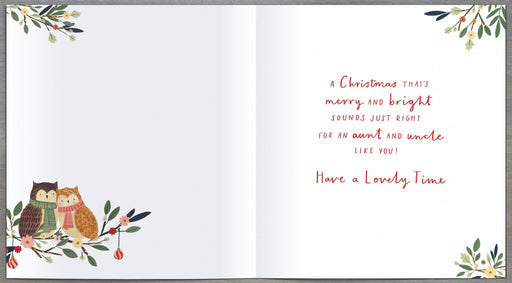 A Christmas THAT'S
merry AND bright
SOUNDS JUST RIGHT
FOR AN aunt AND uncle
LIKE YOU!
Have a Lovely Time